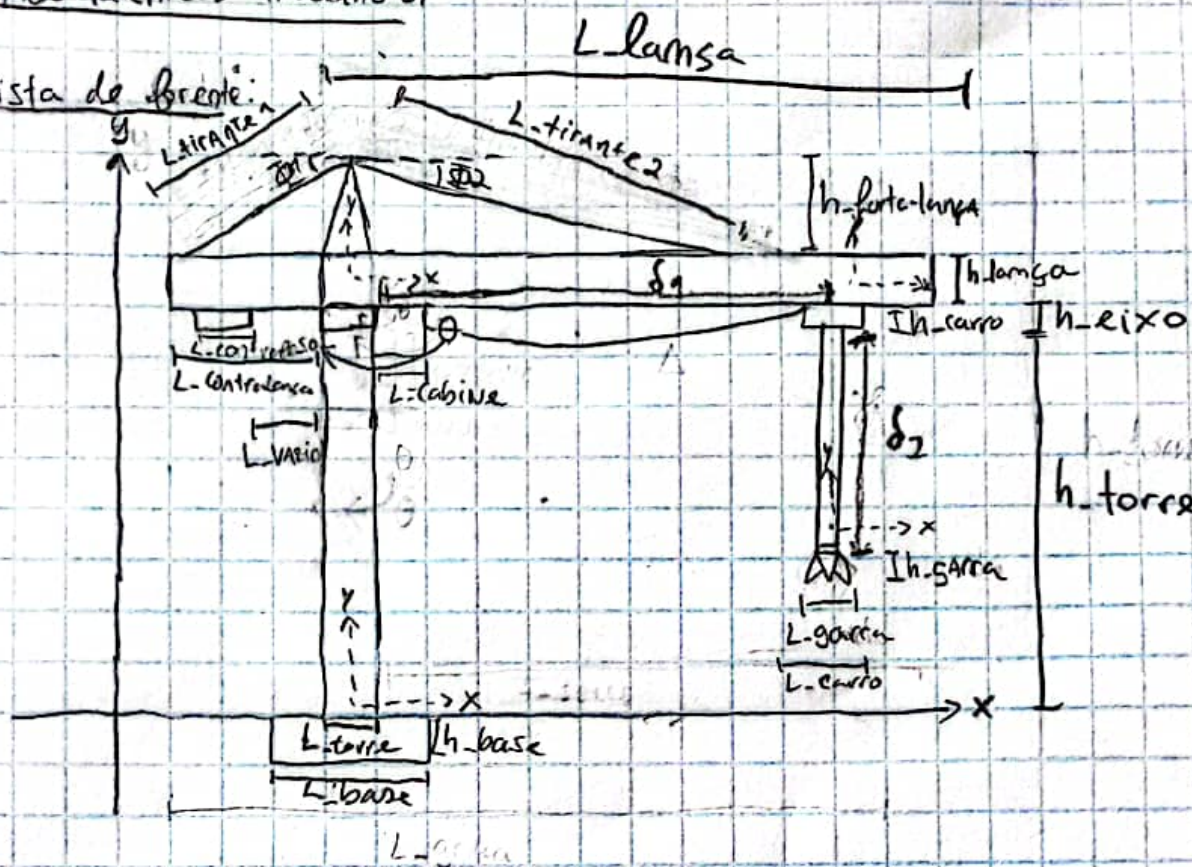 L_lamsa
ista de frente:
y
L_tirAnte1
L_tirAnte2
Φ2
h_porta-lança
y
x
δ1
h_lamça
Ih_carro
h_eixo
θ
L_contrapeso
L_contralansa
L_cabine
L_VAZIO
δ2
h_torre
y
x
Ih_gArra
L_garra
L_carro
y
x
x
L_torre
h_base
L_base